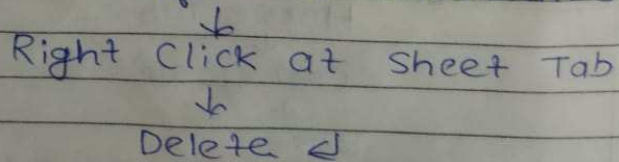 ↓
Right Click at Sheet Tab
↓
Delete ↲